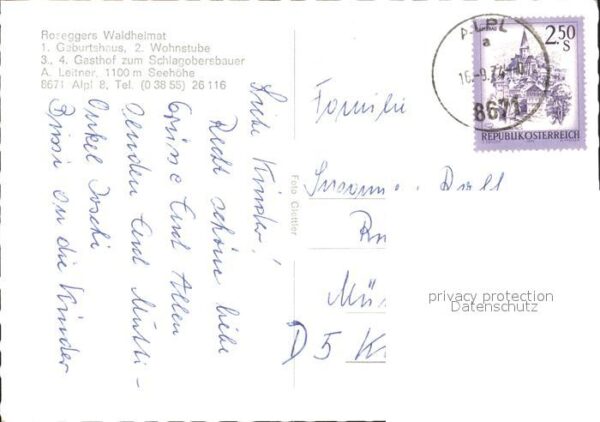 Roseggers Waldheimat
1. Geburtshaus, 2. Wohnstube
3., 4. Gasthof zum Schlagobersbauer
A. Leitner, 1100 m Seehöhe
8671 Alpl 8, Tel. (0 38 55) 26 116
Liebe Kinder!
Recht schöne liebe
Grüsse Euch Allen
senden Euch Mutti-
Onkel Poschi
Bussi an die Kinder
Foto Giettler
ALPL
a
8671
2.50
S
REPUBLIK ÖSTERREICH
Familie
Susanne Doll
Mün
D 5 K
privacy protection
Datenschutz